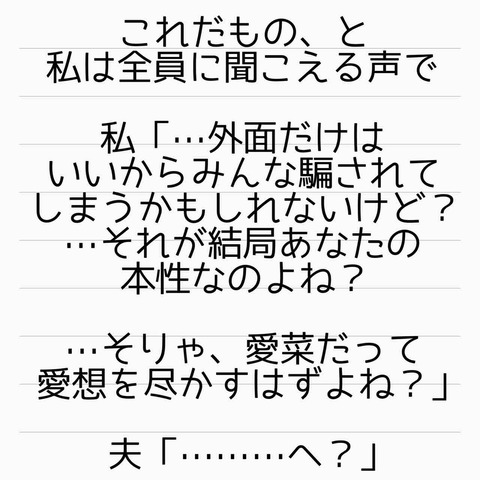 これだもの、と
私は全員に聞こえる声で
私「…外面だけは
いいからみんな騙されて
しまうかもしれないけど？
…それが結局あなたの
本性なのよね？
…そりゃ、愛菜だって
愛想を尽かすはずよね？」
夫「………へ？」